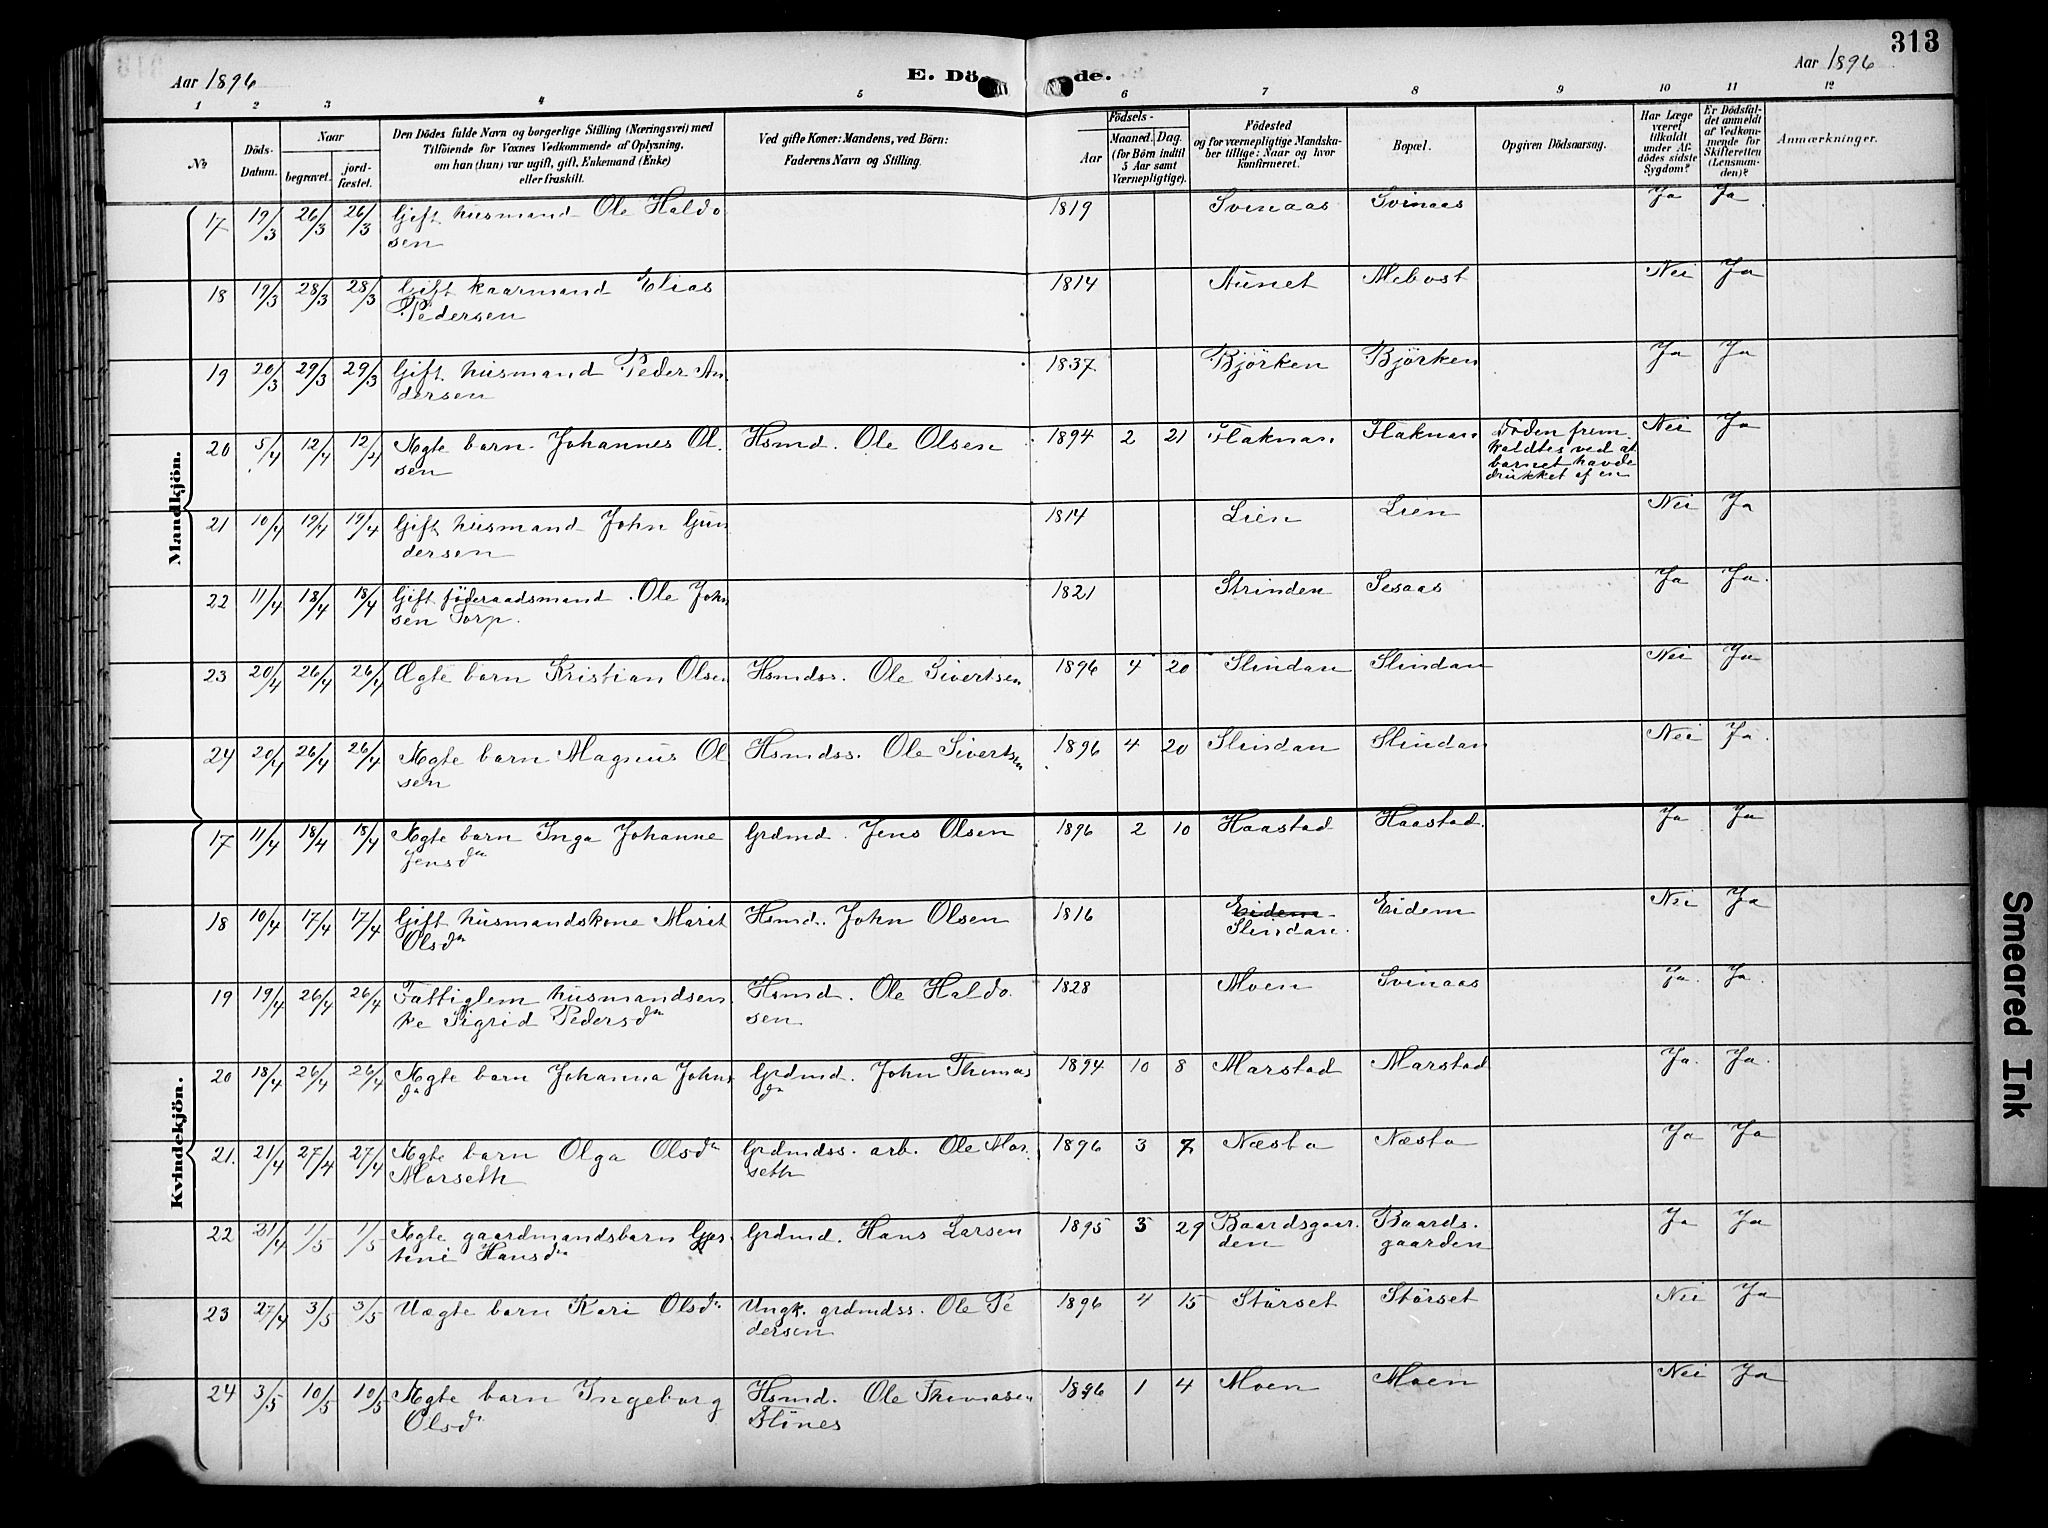 313
Aar 1896
E. Dö de.
Aar 1896
1 2 3 4 5 6 7 8 9 10 11 12
No
Döds-Datum.
Naar
begravet.
jord-fæstet.
Den Dödes fulde Navn og borgerlige Stilling (Næringsvei) med
Tilföiende for Voxnes Vedkommende af Oplysning,
om han (hun) var ugift, gift, Enkemand (Enke)
eller fraskilt.
Ved gifte Koner: Mandens, ved Börn:
Faderens Navn og Stilling.
Födsels-
Aar
Maaned. Dag.
(for Börn indtil
5 Aar samt
Værnepligtige).
Födested
og for værnepligtige Mandska-
ber tillige: Naar og hvor
konfirmeret.
Bopæl.
Opgiven Dödsaarsag.
Har Læge
været
tilkaldt
under Af-
dödes sidste
Sygdom?
Er Dödsfal-
det anmeldt
af Vedkom-
mende for
Skifteretten
(Lensman-
den)?
Anmærkninger.
Mandkjön.
17 19/3 26/3 26/3 Gift husmand Ole Haldo 1819 Svinaas Svinaas Ja Ja
sen
18 19/3 28/3 28/3 Gift kaarmand Elias 1814 Aunet Mebost Nei Ja
Pedersen
19 20/3 29/3 29/3 Gift husmand Peder An 1837 Björken Björken Ja Ja
dersen
20 5/4 12/4 12/4 Ægte barn Johannes Ol Hsmd. Ole Olsen 1894 2 21 Flaknan Flaknan Döden frem Nei Ja
sen kaldtes ved at
barnet havde
drukket af en
21 10/4 19/4 19/4 Gift husmand John Gun 1814 Lien Lien Nei Ja
dersen
22 11/4 18/4 18/4 Gift föderaadsmand Ole John 1821 Strinden Sesaas Ja Ja
sen Torp.
23 20/4 26/4 26/4 Ægte barn Kristian Olsen Hsmdss. Ole Sivertsen 1896 4 20 Slindan Slindan Nei Ja
24 20/4 26/4 26/4 Ægte barn Magnus Ol Hsmdss. Ole Sivertsen 1896 4 20 Slindan Slindan Nei Ja
sen
Kvindekjön.
17 11/4 18/4 18/4 Ægte barn Inga Johanne Grdmd. Jens Olsen 1896 2 10 Haastad Haastad. Ja Ja
Jensda
18 10/4 17/4 17/4 Gift husmandskone Marit Hsmd. John Olsen 1816 Eidem Eidem Nei Ja
Olsda Slindan.
19 19/4 26/4 26/4 Fattiglem husmandsen Hsmd. Ole Haldo 1828 Moen Svinaas Ja. Ja.
ke Sigrid Pedersda sen
20 18/4 26/4 26/4 Ægte barn Johanna Johns Grdmd. John Thomas 1894 10 8 Marstad Marstad Ja. Ja.
da da
21. 21/4 27/4 27/4 Ægte barn Olga Olsda Grdmdss. arb. Ole Mor 1896 3 7 Næsta Næsta Ja Ja
Morseth seth
22 21/4 1/5 1/5 Ægte gaardmandsbarn Gjes Grdmd. Hans Larsen 1895 3 29 Baardsgaar Baards. Ja Ja
tine Hansda den gaarden
23 27/4 3/5 3/5 Uægte barn Kari Olsda Ungk. grdmdss. Ole Pe 1896 4 15 Störset Störset Nei Ja
dersen
24 3/5 10/5 10/5 Ægte barn Ingeborg Hsmd. Ole Thomasen 1896 1 4 Moen Moen Nei Ja
Olsda Flönes
Smeared Ink